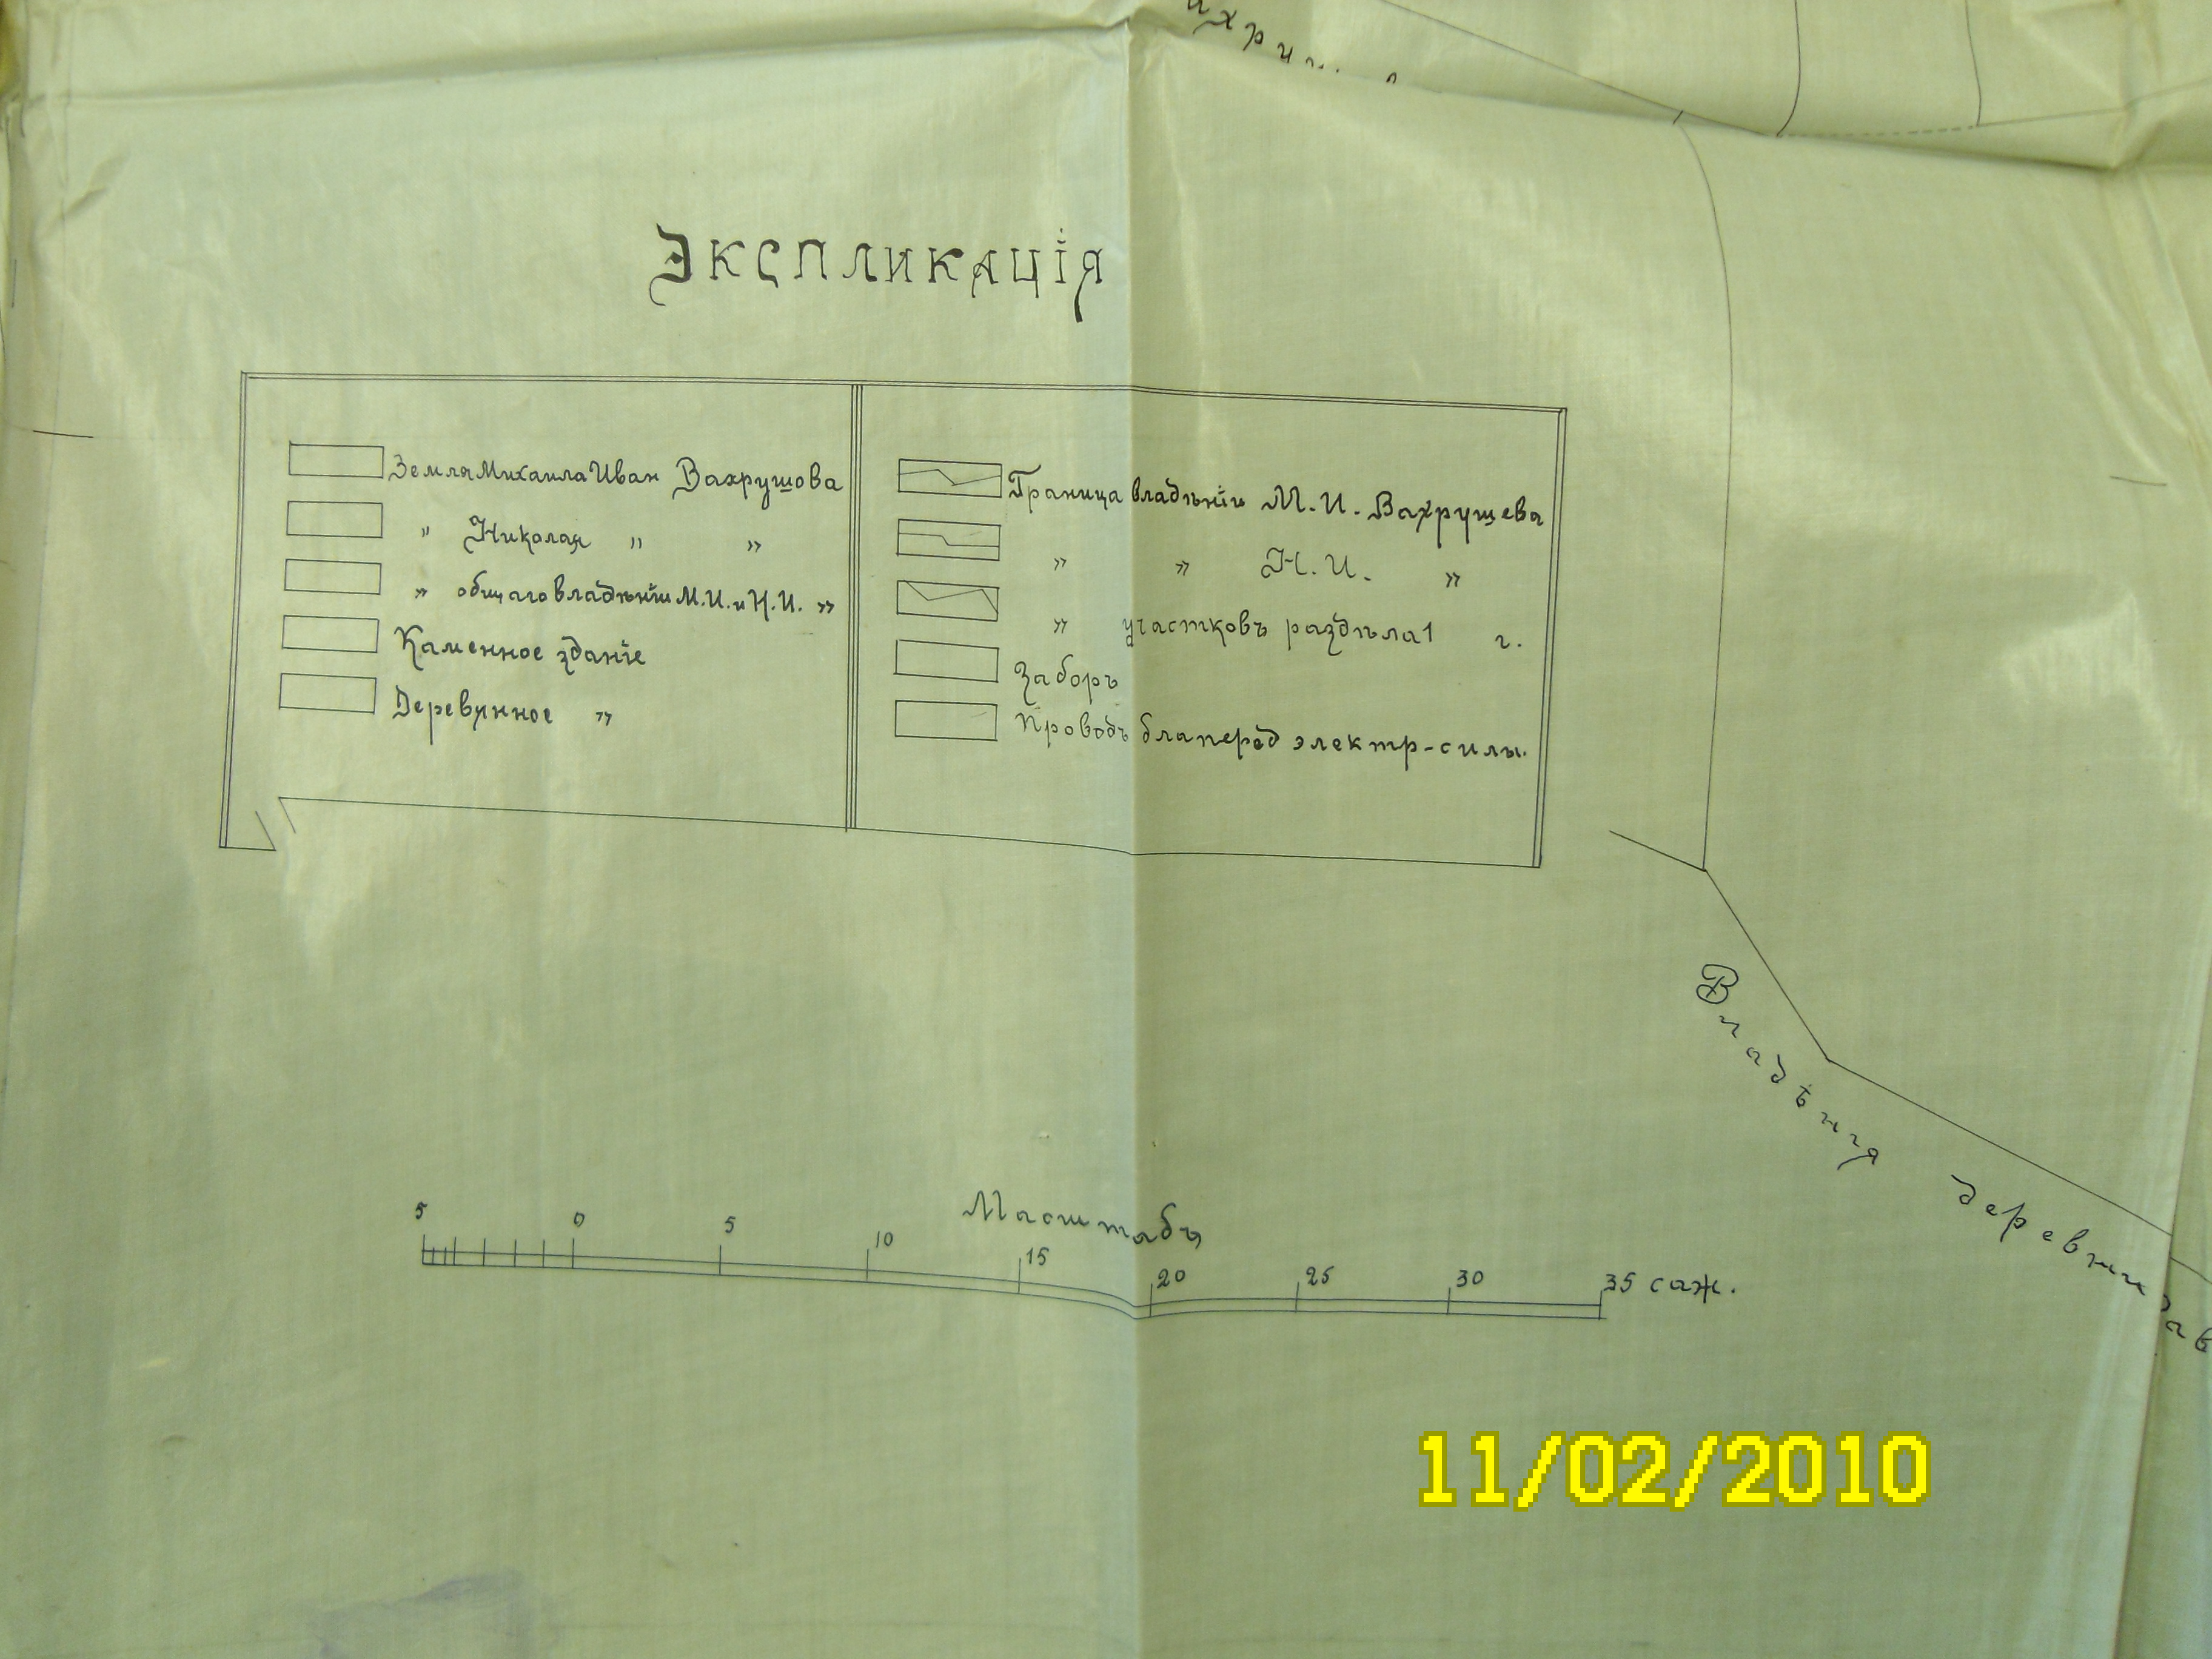 Экспликація
Земля Михаила Иван Вахрушова
" Николая " "
" общаго владѣнія М.И. и Н.И. "
Каменное зданіе
Деревянное "
Граница владѣній М.И. Вахрушева
" " Н.И. "
" участковъ раздѣла 1 г.
Заборъ
Проводъ для перед электр-силы.
Владѣния деревни
Масштабъ
5 0 5 10 15 20 25 30 35 саж.
11/02/2010